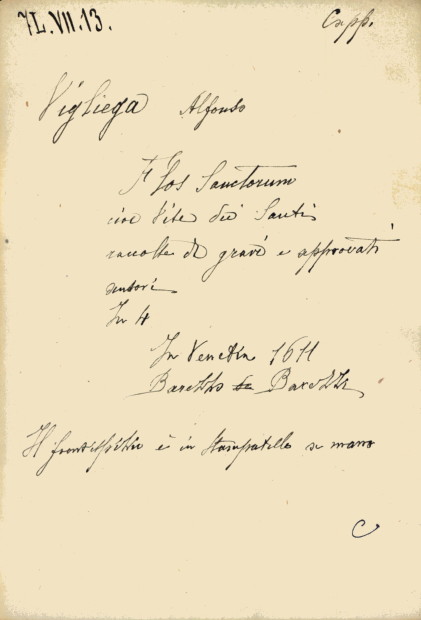 7L.VII.13. Capp.
Vigliega Alfonso
Flos Sanctorum
cioe Vite dei Santi
raccolte da gravi e approvati
autori
In 4
In Venetia 1611
Barezzo Barezzi
Il frontespizio è in stampatello a mano
C